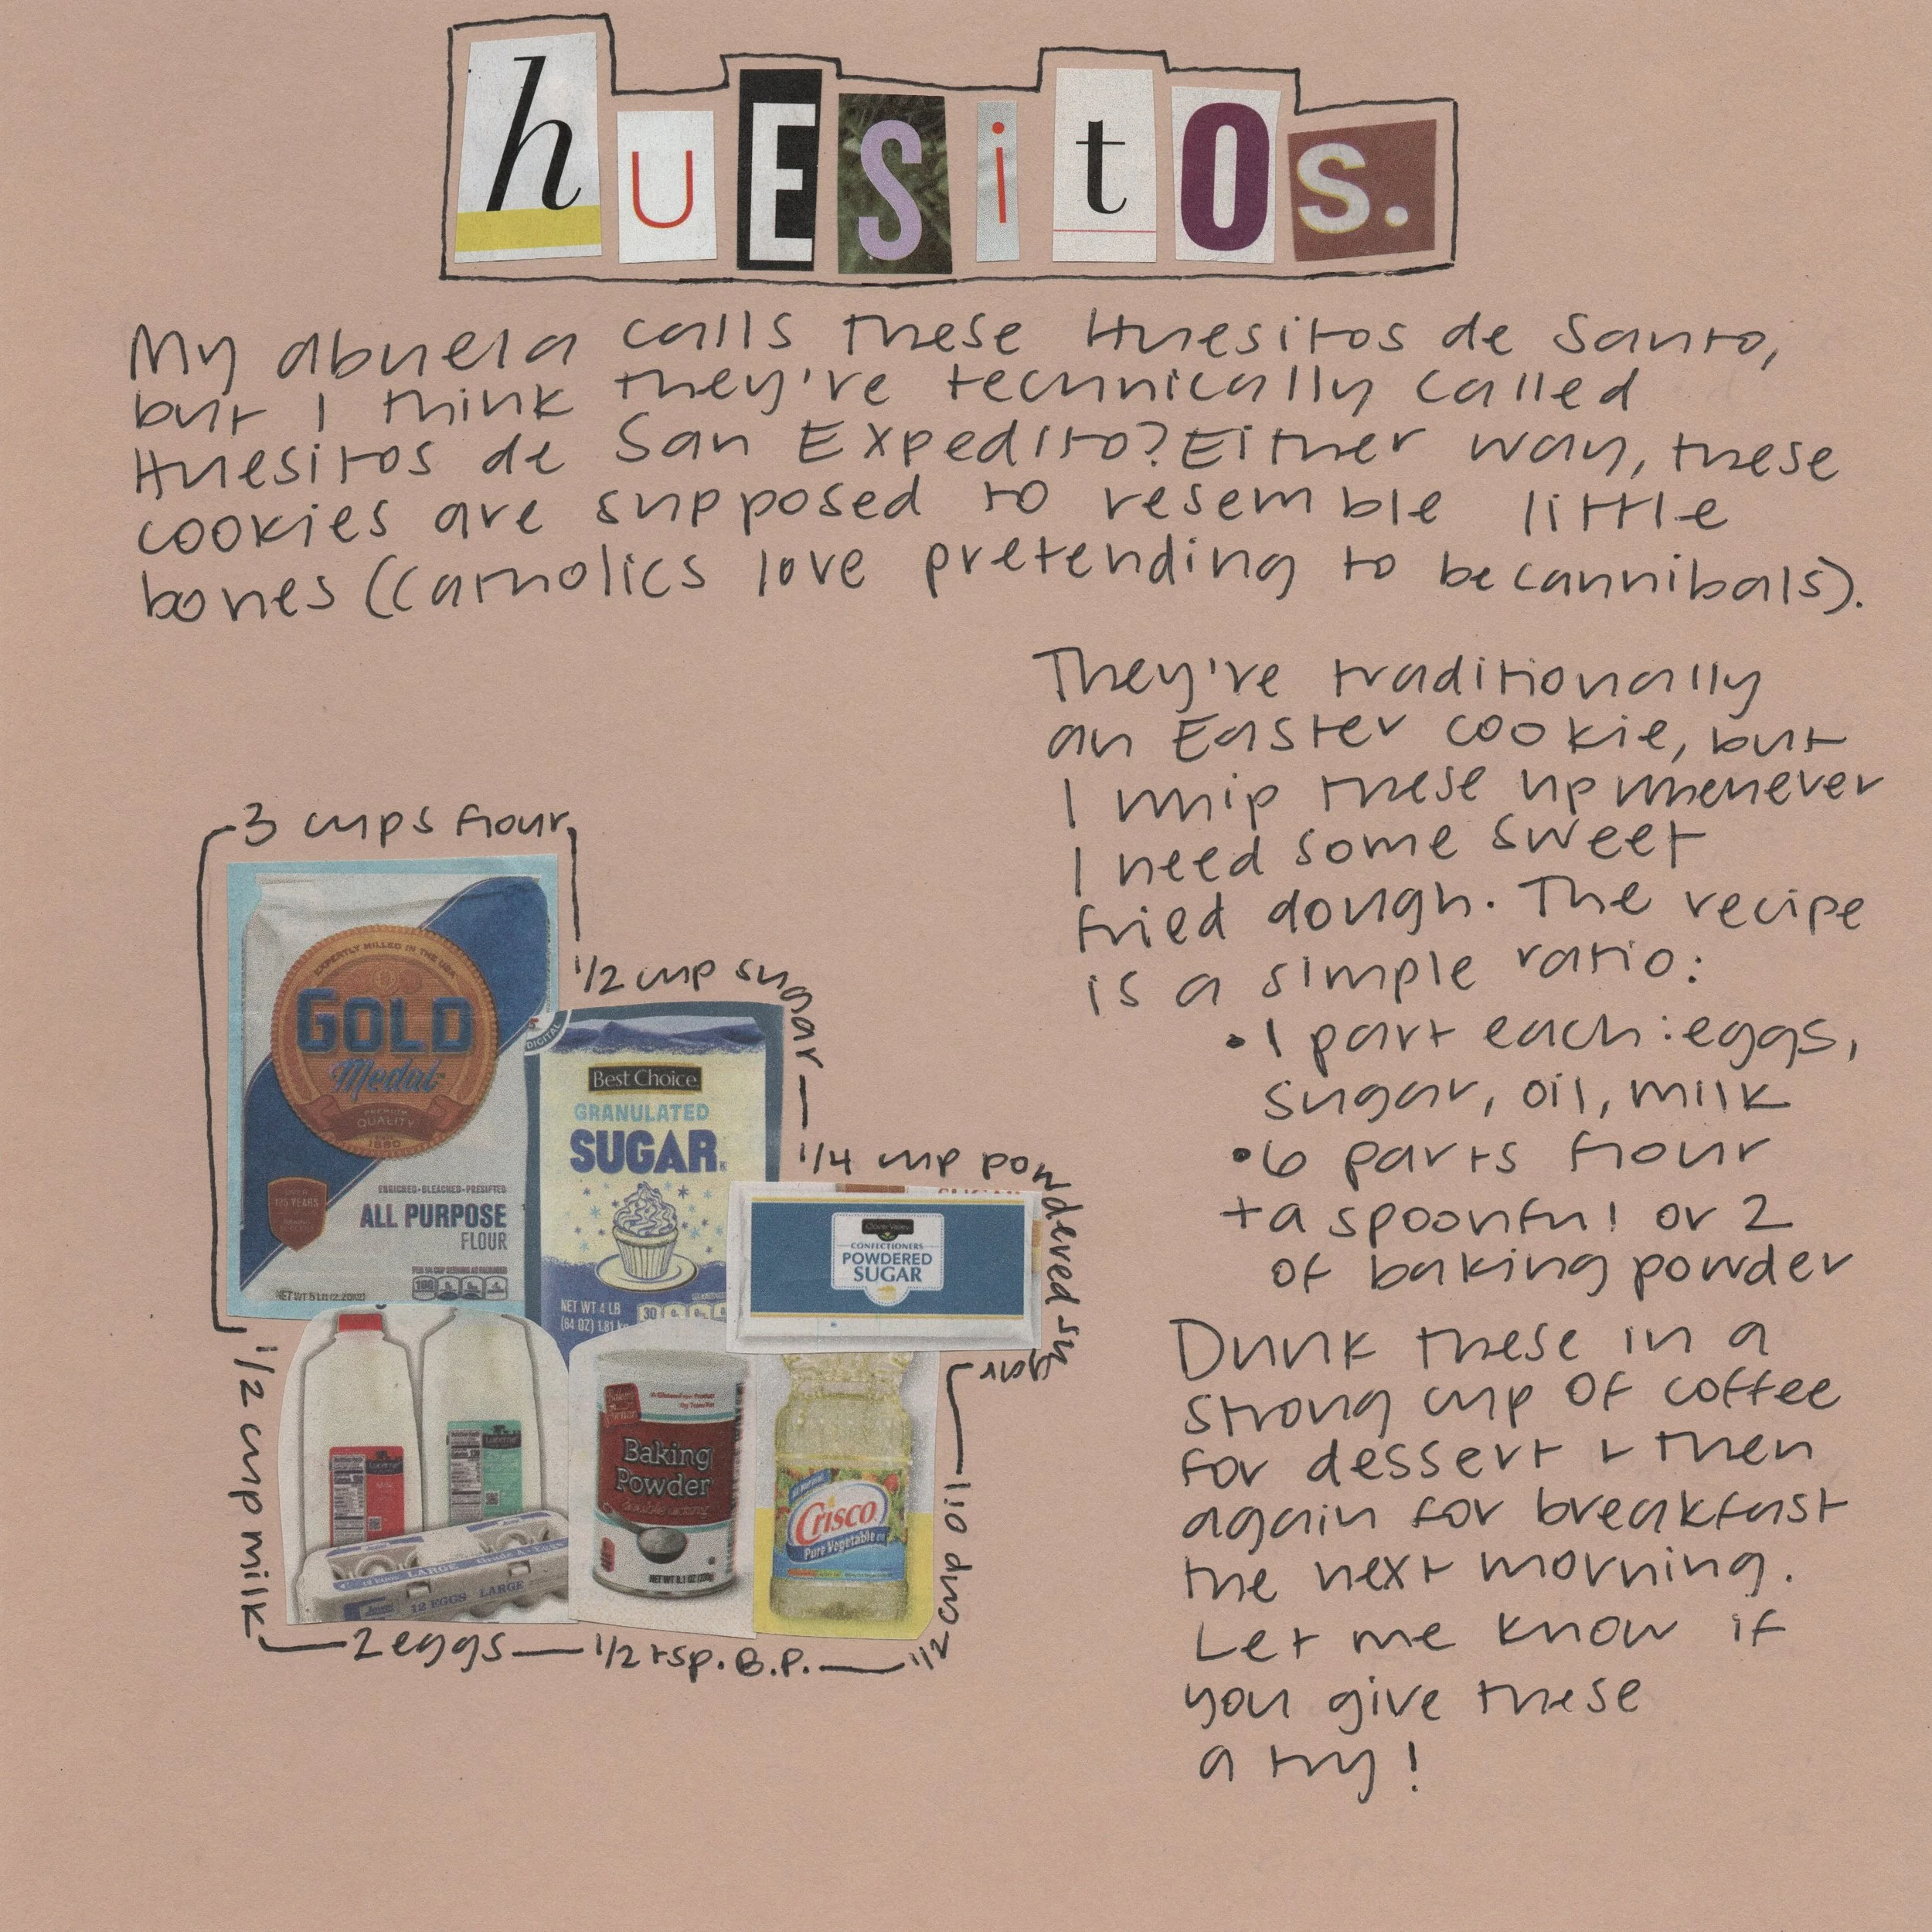 huEsitOs.
My abuela calls these Huesitos de Santo,
but I think they're technically called
Huesitos de San Expedito? Either way, these
cookies are supposed to resemble little
bones (Catholics love pretending to be cannibals).
They're traditionally
an Easter cookie, but
I whip these up whenever
I need some sweet
fried dough. The recipe
is a simple ratio:
•1 part each: eggs,
sugar, oil, milk
•6 parts flour
+a spoonful or 2
of baking powder
Dunk these in a
strong cup of coffee
for dessert & then
again for breakfast
the next morning.
Let me know if
you give these
a try!
3 cups flour
EXPERTLY MILLED IN THE USA
GOLD
Medal
PREMIUM
QUALITY
1880
OVER
125 YEARS
ENRICHED•BLEACHED•PRESIFTED
ALL PURPOSE
FLOUR
NET WT 5 LB
1/2 cup sugar
DIGITAL
Best Choice
GRANULATED
SUGAR
NET WT 4 LB
(64 OZ) 1.81 kg
30
1/4 cup powdered sugar
Clover Valley
CONFECTIONERS
POWDERED
SUGAR
1/2 cup milk
Lucerne
LARGE
Grade A
12 EGGS LARGE
2 eggs
Baker's
Corner
Baking
Powder
double acting
NET WT 8.1 OZ
1/2 tsp. B.P.
Crisco
Pure Vegetable
1/2 cup oil